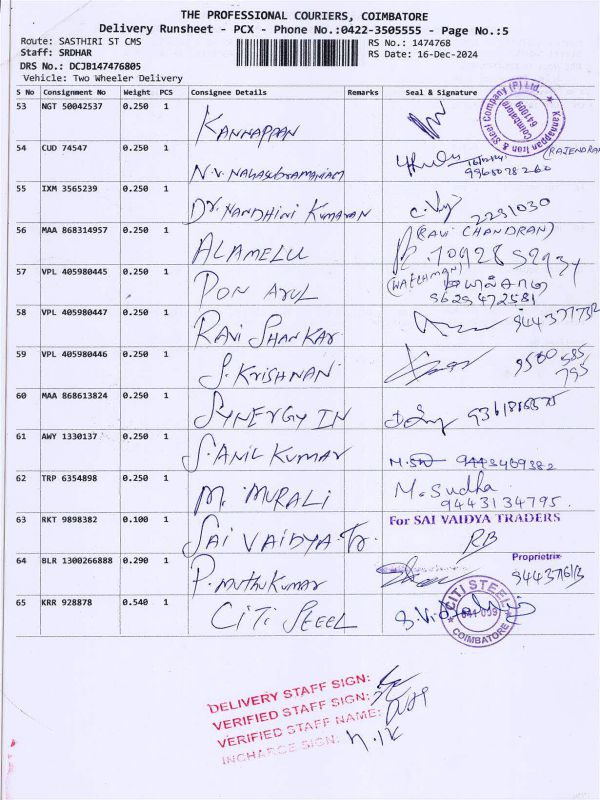 THE PROFESSIONAL COURIERS, COIMBATORE
Delivery Runsheet - PCX - Phone No.:0422-3505555 - Page No.:5
Route: SASTHIRI ST CMS RS No.: 1474768
Staff: SRDHAR RS Date: 16-Dec-2024
DRS No.: DCJB147476805
Vehicle: Two Wheeler Delivery
S No Consignment No Weight PCS Consignee Details Remarks Seal & Signature
53 NGT 50042537 0.250 1 KANNAPPAN
Kannappan Iron & Steel Company (P) Ltd. Coimbatore 641009
54 CUD 74547 0.250 1 N.V. NAGASUBRAMANIAM (RAJENDRAN
55 IXM 3565239 0.250 1 Dr. NANDHINI KUMARAN 2231030
56 MAA 868314957 0.250 1 ALAMELU (RAVI CHANDRAN)
57 VPL 405980445 0.250 1 PON ARUL (WATCHMAN)
9629472581
58 VPL 405980447 0.250 1 RAVI SHANKAR
59 VPL 405980446 0.250 1 S. KRISHNAN 9500 585 795
60 MAA 868613824 0.250 1 SYNERGY IN
61 AWY 1330137 0.250 1 S. ANIL KUMAR 9443469382
62 TRP 6354898 0.250 1 M. MURALI M. Sudha
9443134795.
63 RKT 9898382 0.100 1 SAI VAIDYA Tr. For SAI VAIDYA TRADERS
Proprietrix
64 BLR 1300266888 0.290 1 P. muthukumar
65 KRR 928878 0.540 1 CITI STEEL
CITI STEEL COIMBATORE
DELIVERY STAFF SIGN:
VERIFIED STAFF SIGN:
VERIFIED STAFF NAME:
INCHARGE SIGN: